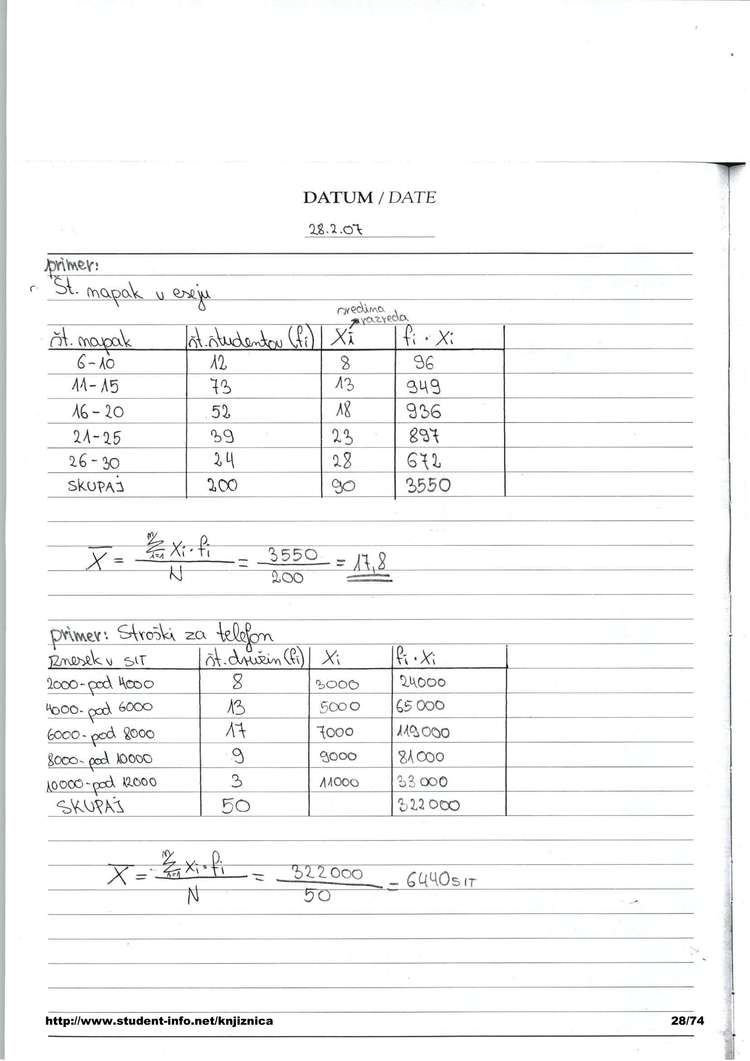 DATUM / DATE
28.2.07
primer:
Št. mapak v eseju
sredina
razreda
št. mapak št. študentov (fi) Xi fi · Xi
6-10 12 8 96
11-15 73 13 949
16-20 52 18 936
21-25 39 23 897
26-30 24 28 672
SKUPAJ 200 90 3550
X = m Σ i=1 Xi · fi / N = 3550 / 200 = 17,8
primer: Stroški za telefon
Znesek v SIT št. družin (fi) Xi fi · Xi
2000-pod 4000 8 3000 24000
4000-pod 6000 13 5000 65 000
6000-pod 8000 17 7000 119 000
8000-pod 10000 9 9000 81 000
10000-pod 12000 3 11000 33 000
SKUPAJ 50 322 000
X = m Σ i=1 Xi · fi / N = 322000 / 50 = 6440 SIT
http://www.student-info.net/knjiznica 28/74